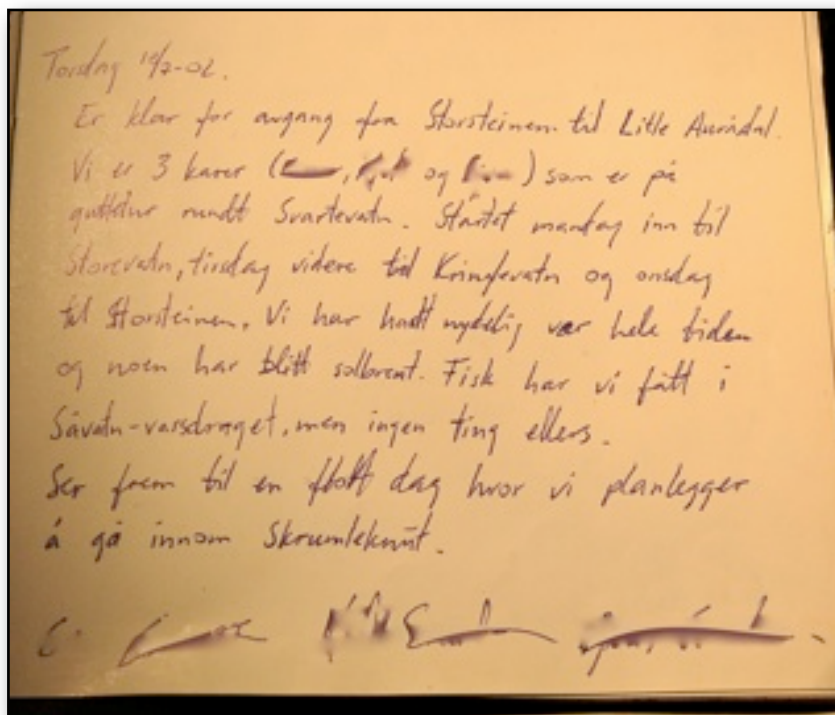 Torsdag
Er klar for avgang fra Storsteinen til Litle Auradal.
Vi er 3 karer ( , og ) som er på
guttetur rundt Svartevatn. Startet mandag inn til
Storevatn, tirsdag videre til Kringlevatn og onsdag
til Storsteinen. Vi har hatt nydelig vær hele tiden
og noen har blitt solbrent. Fisk har vi fått i
Såvatn-vassdraget, men ingen ting ellers.
Ser frem til en flott dag hvor vi planlegger
å gå innom Skrumleknut.